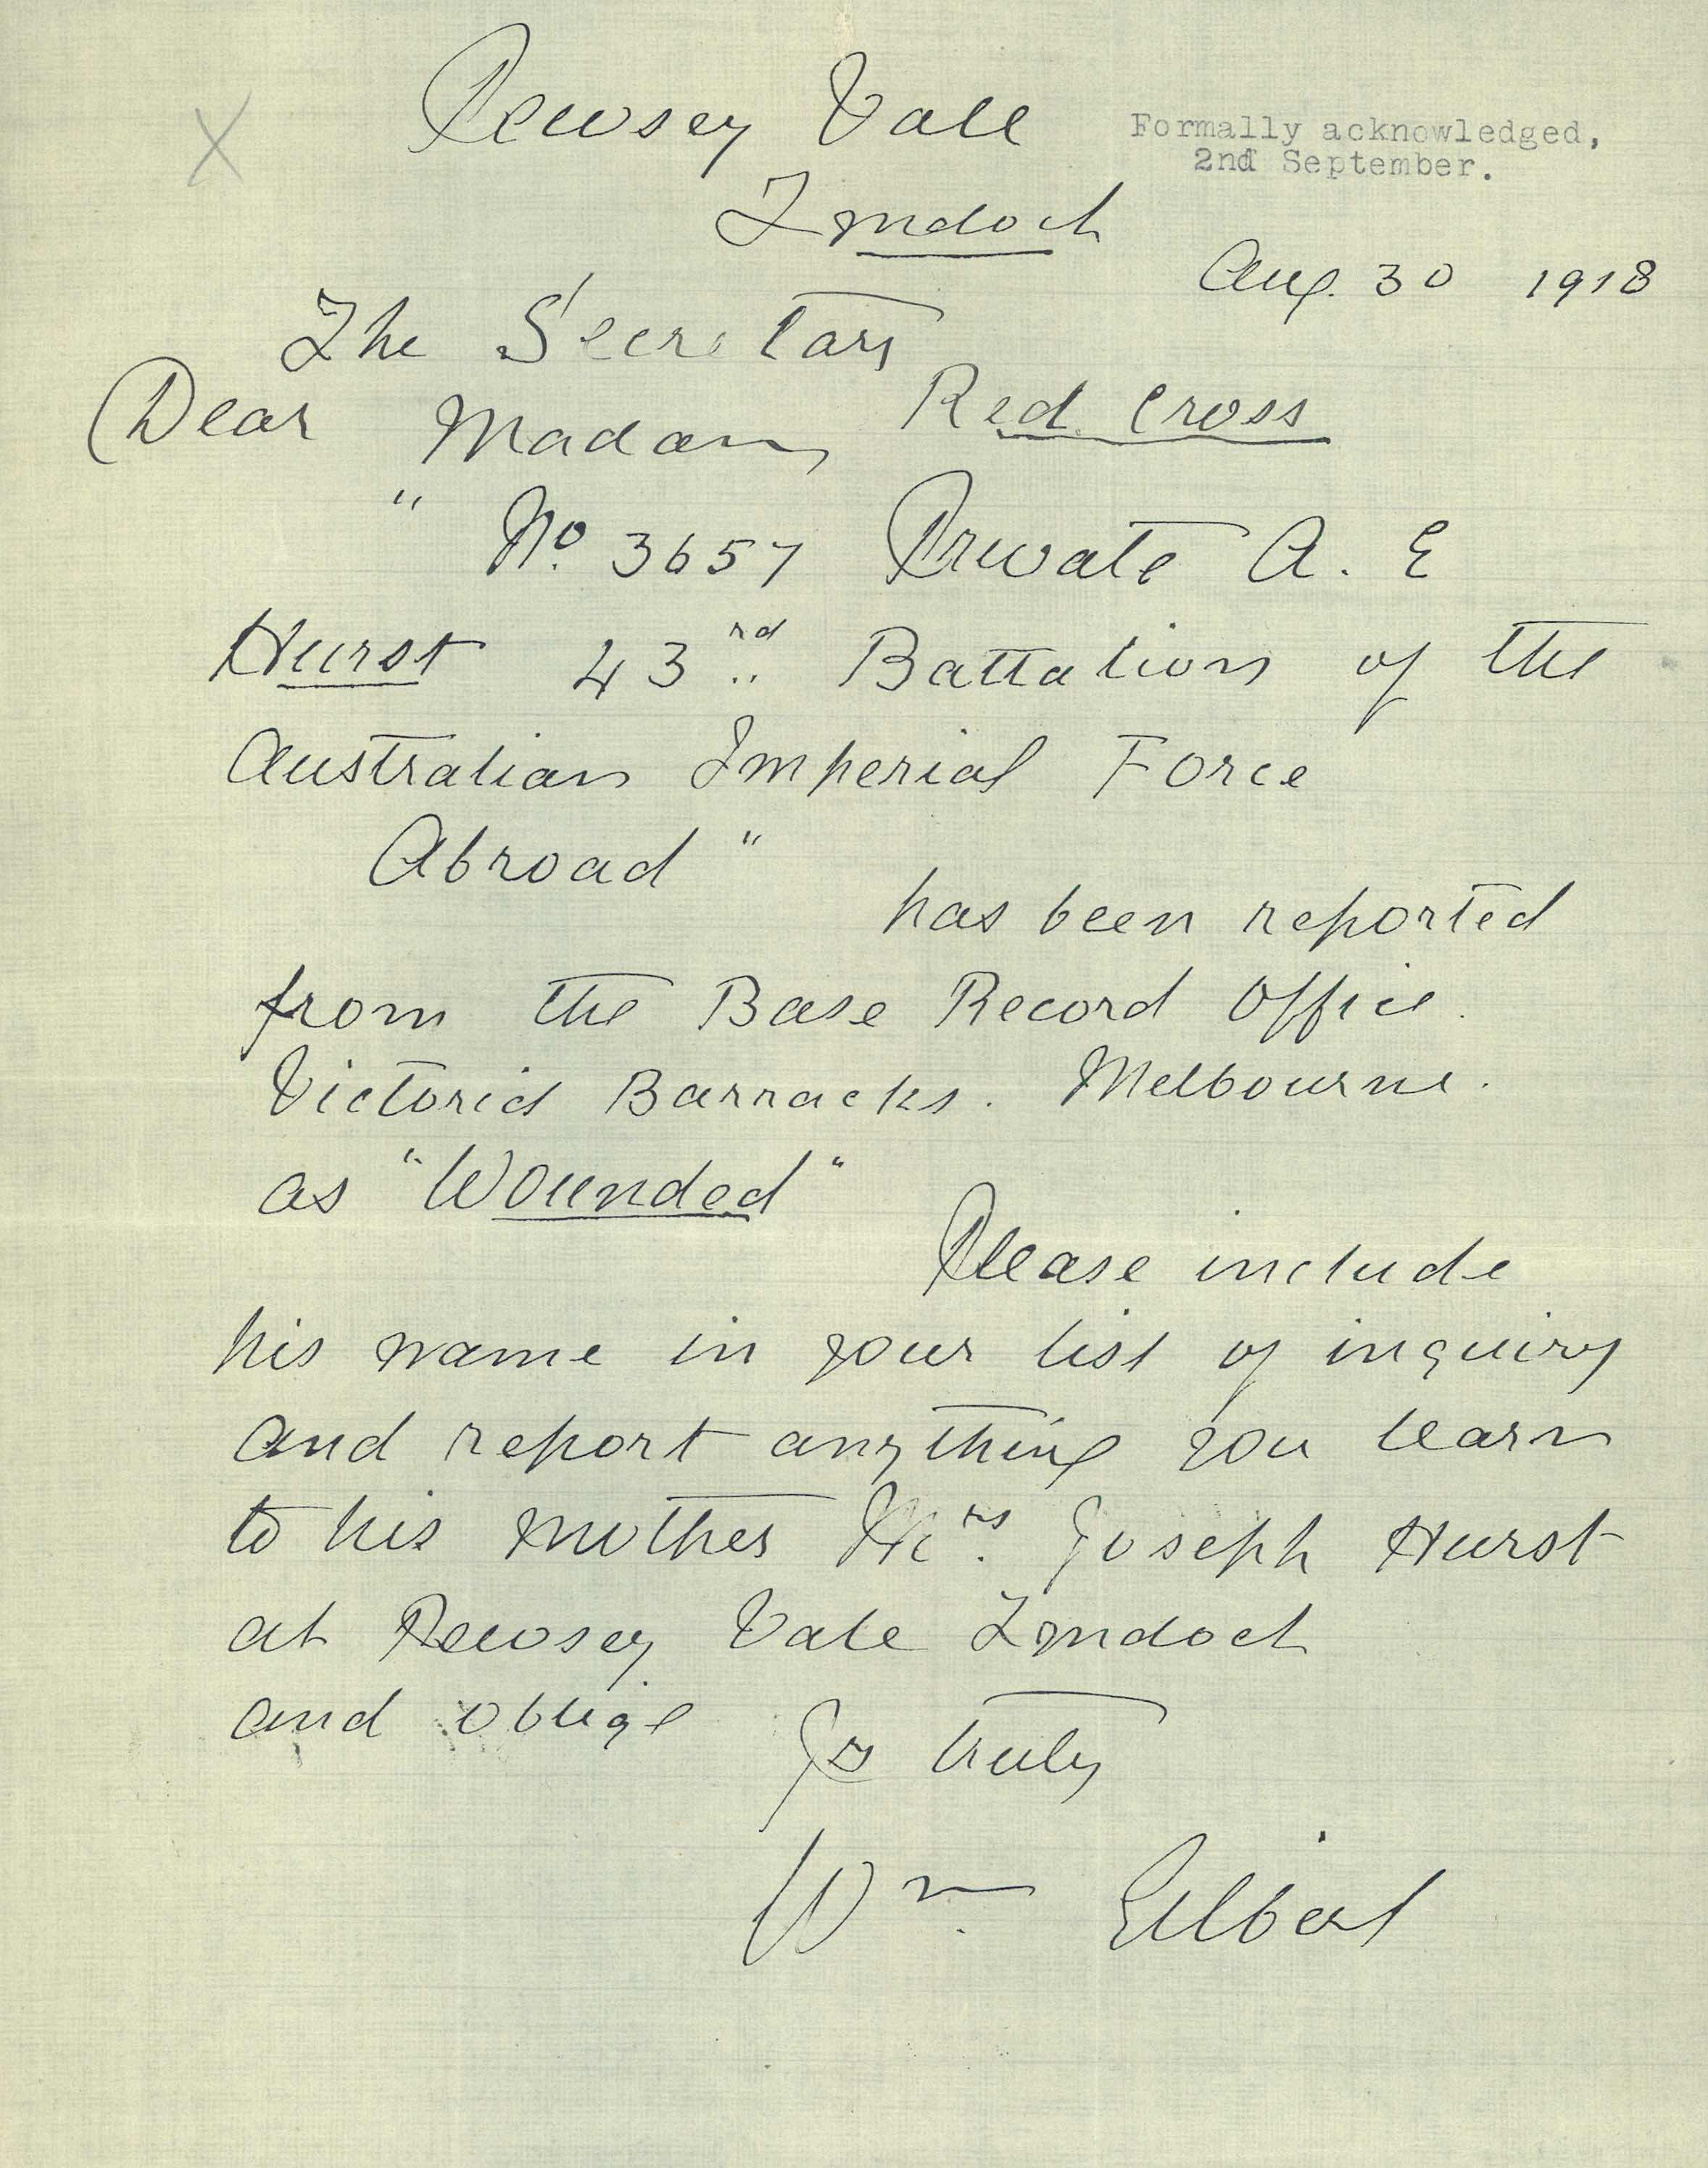 X
Pewsey Vale
Formally acknowledged,
2nd September.
Lyndoch
Aug. 30 1918
The Secretary
Red Cross
Dear Madam,
" No. 3657 Private A. E
Hurst 43rd Battalion of the
Australian Imperial Force
Abroad "
has been reported
from the Base Record Office.
Victoria Barracks. Melbourne.
as "Wounded"
Please include
his name in your list of inquiry
and report anything you learn
to his mother Mrs. Joseph Hurst
at Pewsey Vale Lyndoch
and oblige
Yrs truly
Wm. Gilbert